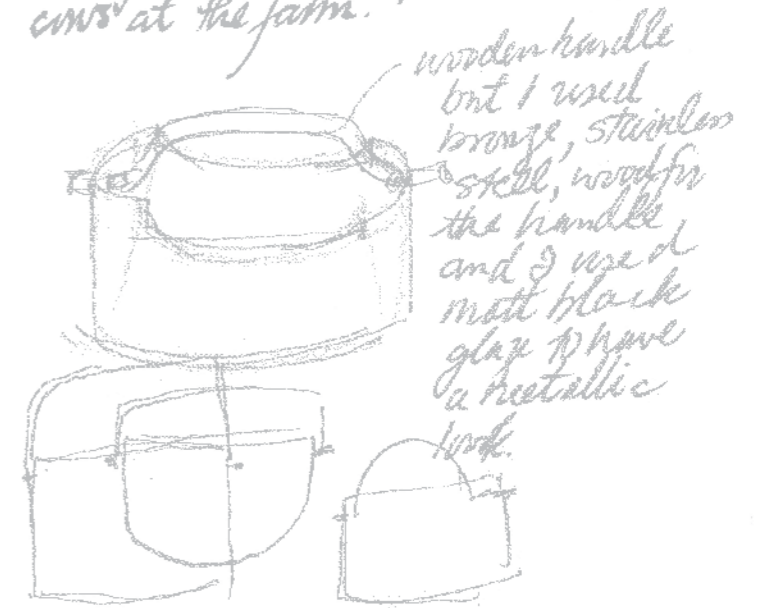 cows at the farm.
wooden handle
but I used
bronze, stainless
steel, wood for
the handle
and I used
matt black
glaze to have
a metallic
look.